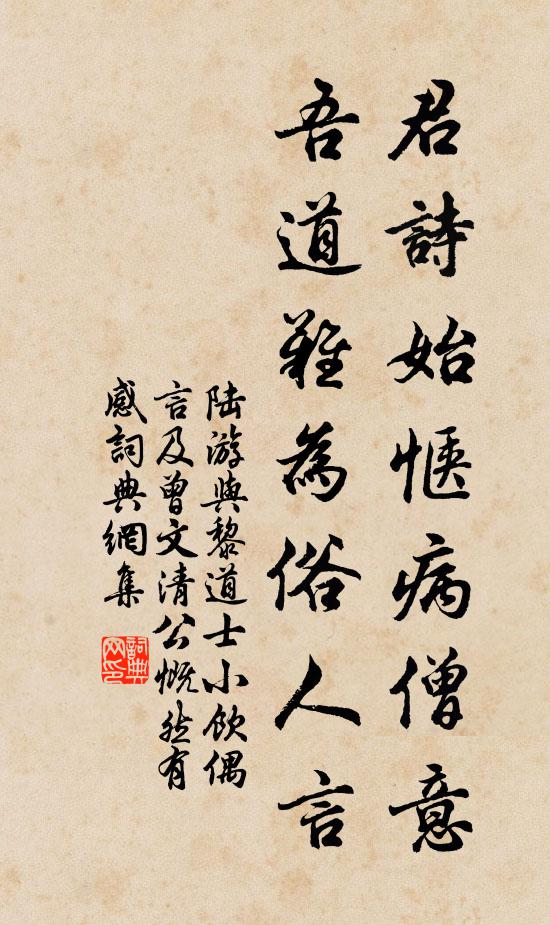 君詩始愜病僧意
吾道難為俗人言
陸游與黎道士小飲偶
言及曾文清公慨然有
感詞典網集
詞典
网印